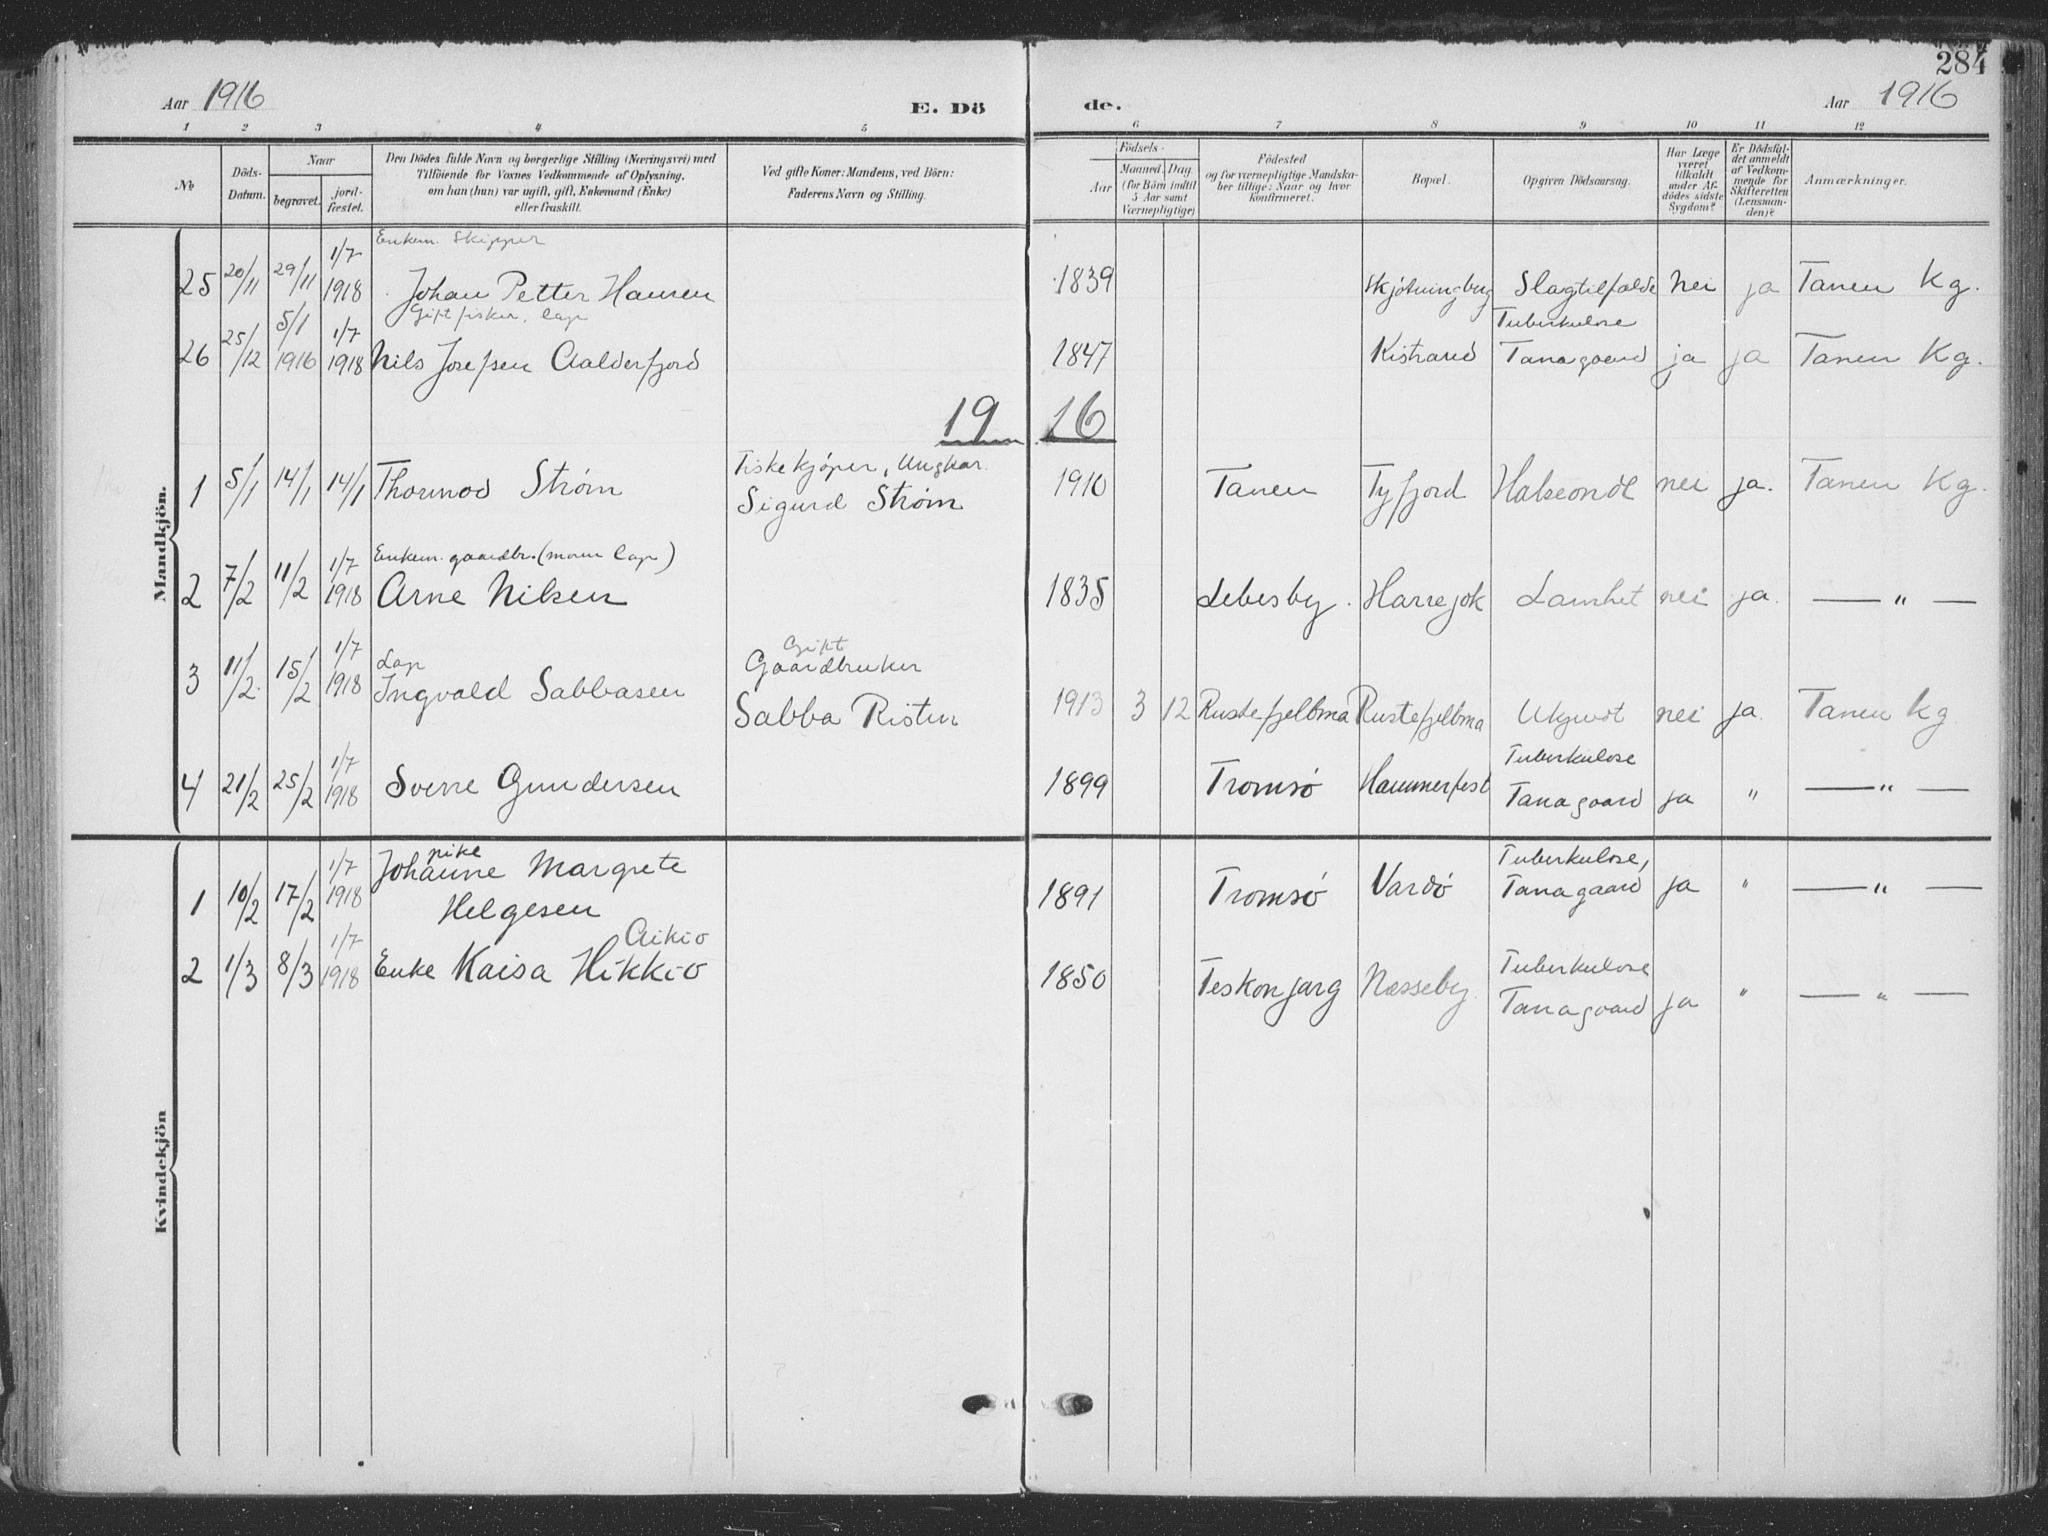 284
Aar 1916 E. Dö de. Aar 1916
1 2 3 4 5 6 7 8 9 10 11 12
№
Döds-Datum.
Naar
begravet.
jord-fæstet.
Den Dödes fulde Navn og borgerlige Stilling (Næringsvei) med
Tilföiende for Voxnes Vedkommende af Oplysning,
om han (hun) var ugift, gift, Enkemand (Enke)
eller fraskilt.
Ved gifte Koner: Mandens, ved Börn:
Faderens Navn og Stilling.
Födsels-
Aar
Maaned. Dag
(for Börn indtil
5 Aar samt
Værnepligtige)
Födested
og for værnepligtige Mandska-
ber tillige: Naar og hvor
konfirmeret.
Bopæl.
Opgiven Dödsaarsag.
Har Læge
været
tilkaldt
under Af-
dödes sidste
Sygdom?
Er Dödsfal-
det anmeldt
af Vedkom-
mende for
Skifteretten
(Lensman-
den)?
Anmærkninger.
Mandkjön.
Enkem. Skipper
25 20/11 29/11 1/7 1918 Johan Petter Hansen 1839 Skjøtningberg Slagtilfælde Nei ja Tanen Kg.
Gift fisker, lap
26 25/12 5/1 1916 1/7 1918 Nils Josefsen Aalderfjord 1847 Kistrand Tuberkulose Tanagaard ja ja Tanen Kg.
19 16
1 5/1 14/1 14/1 Thormod Strøm Fiskekjøper, Ungkar. Sigurd Strøm 1910 Tanen Tyfjord Halseondt nei ja. Tanen Kg.
Enkem. gaardbr. (moren lap)
2 7/2 11/2 1/7 1918 Arne Nilsen 1835 Lebesby. Harrejok Lamhet nei ja. — " —
Lap
3 11/2 15/2 1/7 1918 Ingvald Sabbasen Gift Gaardbruker Sabba Ristin 1913 3 12 Rustefjelbma Rustefjelbma Ukjendt nei ja. Tanen Kg
4 21/2 25/2 1/7 1918 Sverre Gundersen 1899 Tromsø Hammerfest Tuberkulose Tanagaard ja " — " —
Kvindekjön
pike
1 10/2 17/2 1/7 1918 Johanne Margrete Helgesen 1891 Tromsø Vardø Tuberkulose, Tanagaard ja " — " —
Aikio
2 1/3 8/3 1/7 1918 Enke Kaisa Hikkio 1850 Teskonjarg Næsseby. Tuberkulose Tanagaard ja " — " —